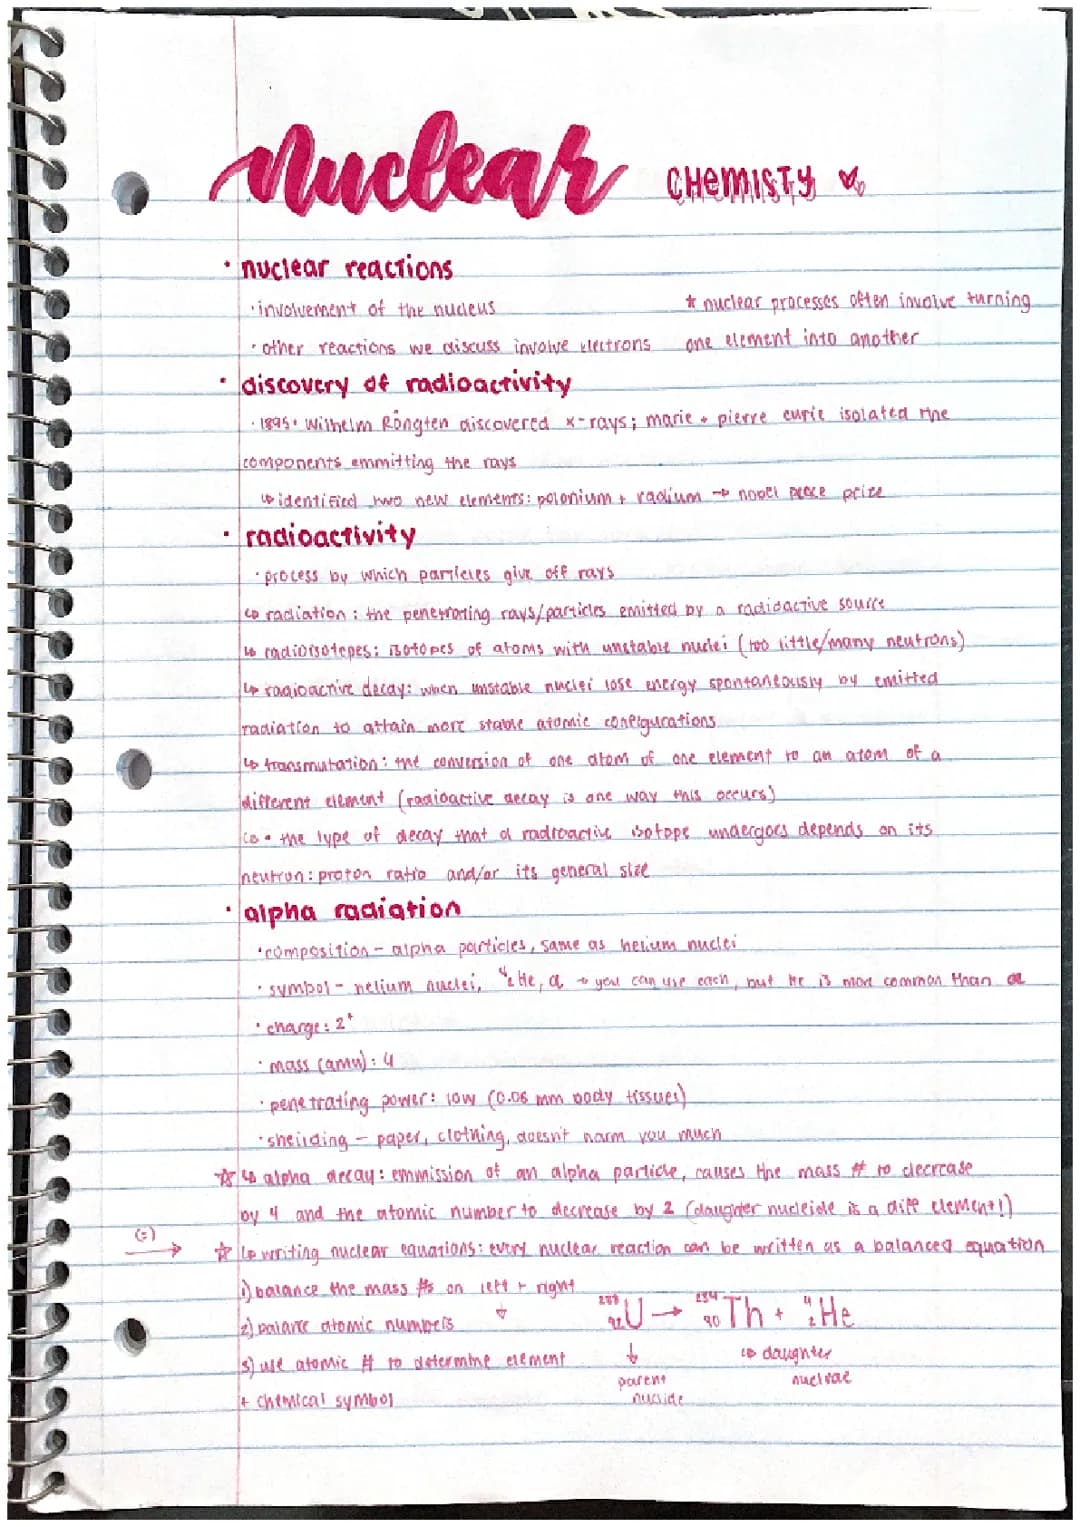 nuclear CHEMISTY
· nuclear reactions
· involvement of the nucleus * nuclear processes often involve turning
· other reactions we discuss involve electrons one element into another
· discovery of radioactivity
· 1895: Wilhelm Röngten discovered x-rays; marie + pierre curie isolated the
components emmitting the rays
↳ identified two new elements: polonium + radium → nobel peace prize
· radioactivity
· process by which particles give off rays
↳ radiation : the penetrating rays/particles emitted by a radioactive source
↳ radioisotopes: isotopes of atoms with unstable nuclei (too little/many neutrons)
↳ radioactive decay: when unstable nuclei lose energy spontaneously by emitted
radiation to attain more stable atomic configurations
↳ transmutation : the conversion of one atom of one element to an atom of a
different element (radioactive decay is one way this occurs)
↳ • the type of decay that a radioactive isotope undergoes depends on its
neutron:proton ratio and/or its general size
· alpha radiation
· composition - alpha particles, same as helium nuclei
· symbol - helium nuclei, ⁴₂He, α → you can use each, but He is more common than α
· charge: 2⁺
· mass (amu): 4
· penetrating power: low (0.06 mm body tissues)
· sheilding - paper, clothing, doesn't harm you much
☆ ↳ alpha decay: emmission of an alpha particle, causes the mass # to decrease
by 4 and the atomic number to decrease by 2 (daughter nucleide is a diff element!)
(=) → ☆ ↳ writing nuclear equations: every nuclear reaction can be written as a balanced equation
1) balance the mass #s on left + right
2) balance atomic numbers ²³⁸₉₂U → ²³⁴₉₀Th + ⁴₂He
3) use atomic # to determine element ↓ ↳ daughter
parent nuclide
+ chemical symbol